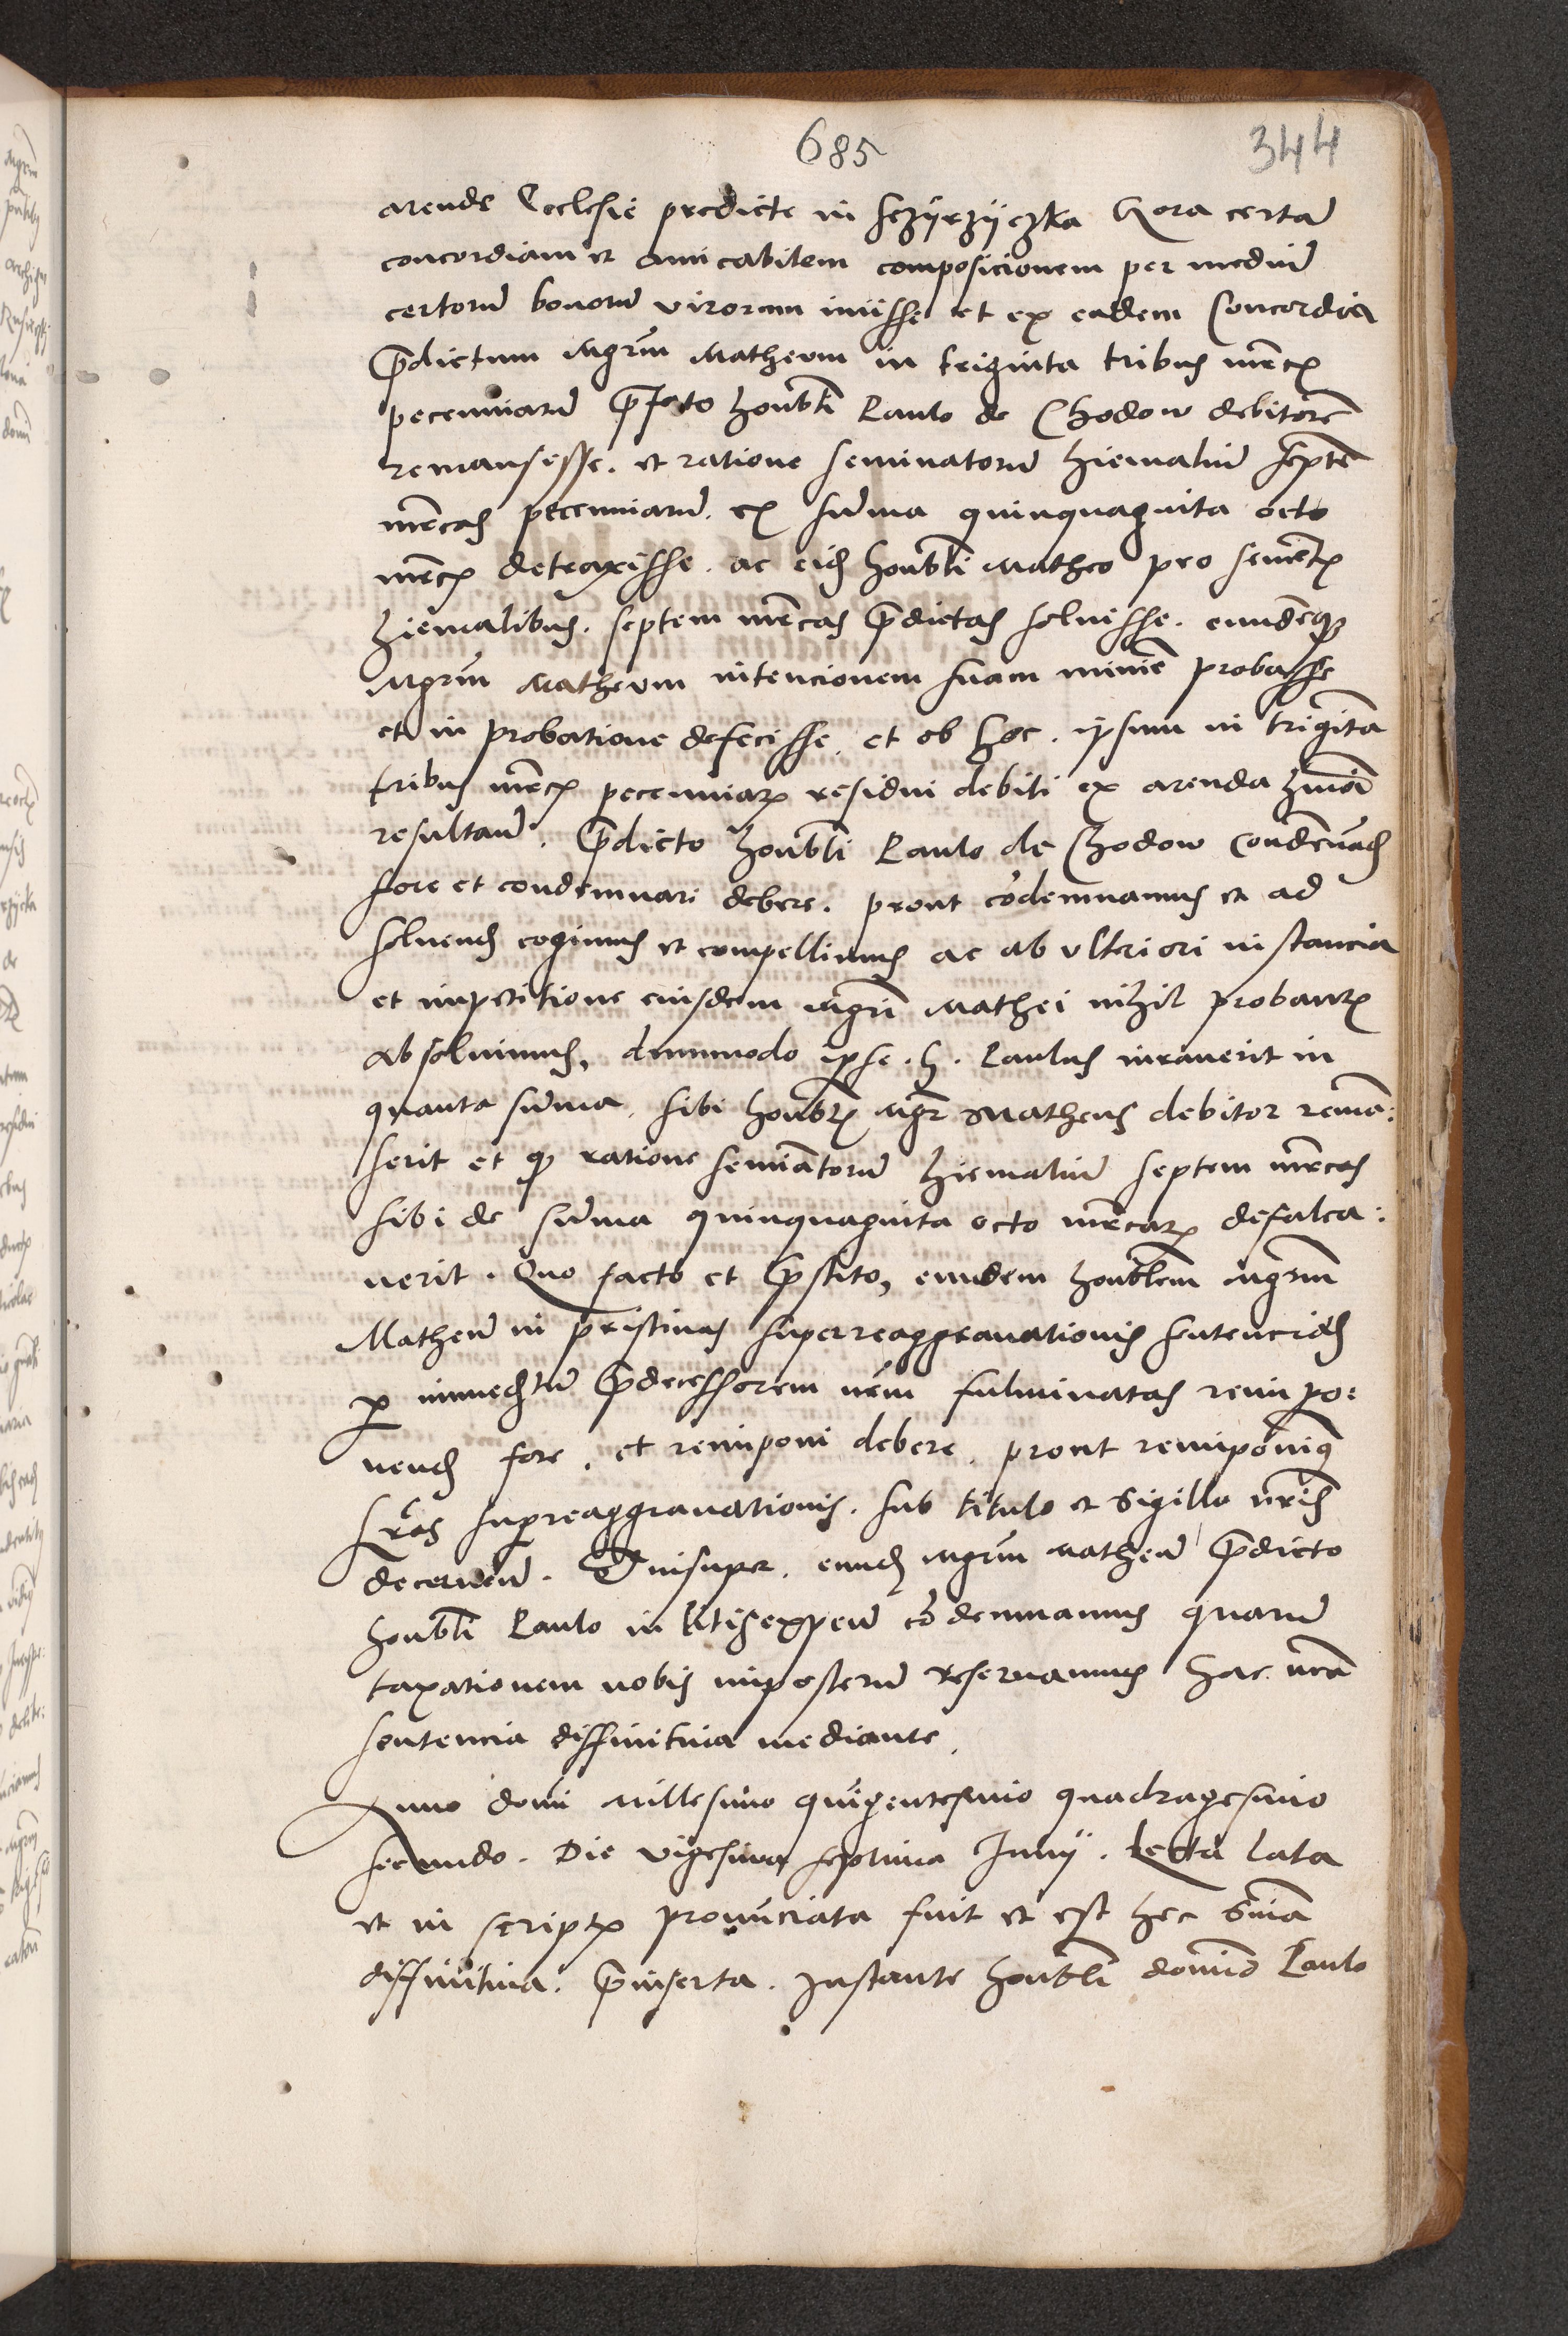 685
344
arende Ecclesie predicte in Sczÿrzÿczka Gora certā
concordiam et amicabilem composicionem per mediū
certorū bonorū virorum iniisse et ex eadem Concordia
p̄dictum Mgrum Matheum in triginta tribus mrcis
pecuniarū p̄fato honbli Paulo de Chodow debitorē
remansisse. et ratione seminatorū hiemaliū septē
mrcas pecuniarū. ex sūma quinquaginta octo
mrcis detraxisse. ac eid honbli Matheo pro sementis
hiemalibus. septem mrcas p̄dictas soluisse. eundēqꝫ
Mgrum Matheum intencionem suam minīe probasse
et in probatione defecisse. et ob hoc. ipsum in trigīta
tribus mrcis pecuniarꝫ residui debiti ex arenda
resultan̄. p̄dicto honbli Paulo de Chodow condēnad
fore et condemnari debere. prout cōdemnamus et ad
soluend cogimus et compellimus ac ab vlteriori instancia
et impetitione eiusdem Mgri Mathei nihil probantis
absoluimus, dummodo ipse. h. Paulus iurauerit in
quanta sūma. sibi honblis Mgr Matheus debitor remā:
serit et qꝫ ratione semīatorū hiemaliū septem mrcas
sibi de sūma quinquaginta octo mrcarꝫ defalca:
uerit. Quo facto et p̄stito, eundem honblem Mgrum
Matheū in pristinas superreaggrauationis sentencias
ꝑ immedtū p̄decessorem nr̄um fulminatas reimpo:
nend fore. et reimponi debere. prout reimponimꝰ
Lr̄as supreaggrauationis. sub titulo et Sigillo nr̄is
decernen̄. Et insuper. eund Mgrum Matheū p̄dicto
honbli Paulo in litis expen̄ cōdemnamus quarū
taxationem nobis imposterū reseruamus hac nr̄a
sentencia diffinitiua mediante.
Anno domī Millesimo quīgentesimo quadragesimo
secundo. Die vigesima septima Junij. Lecta lata
et in scriptis pronūciata fuit et est hec Snīa
diffinitiua. p̄inserta. Instante honbli domīo Paulo